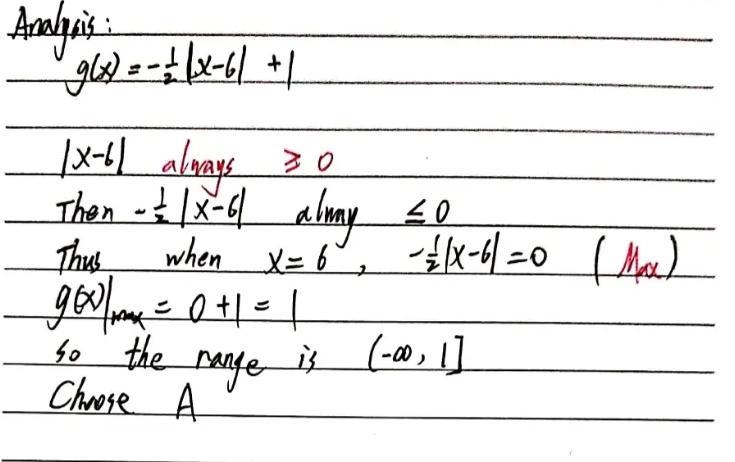 Analysis:
g(x) = -½|x-6| + 1
|x-6| always ≥ 0
Then -½|x-6| alway ≤ 0
Thus when x = 6, -½|x-6| = 0 (Max)
g(x)|max = 0 + 1 = 1
so the range is (-∞, 1]
Choose A